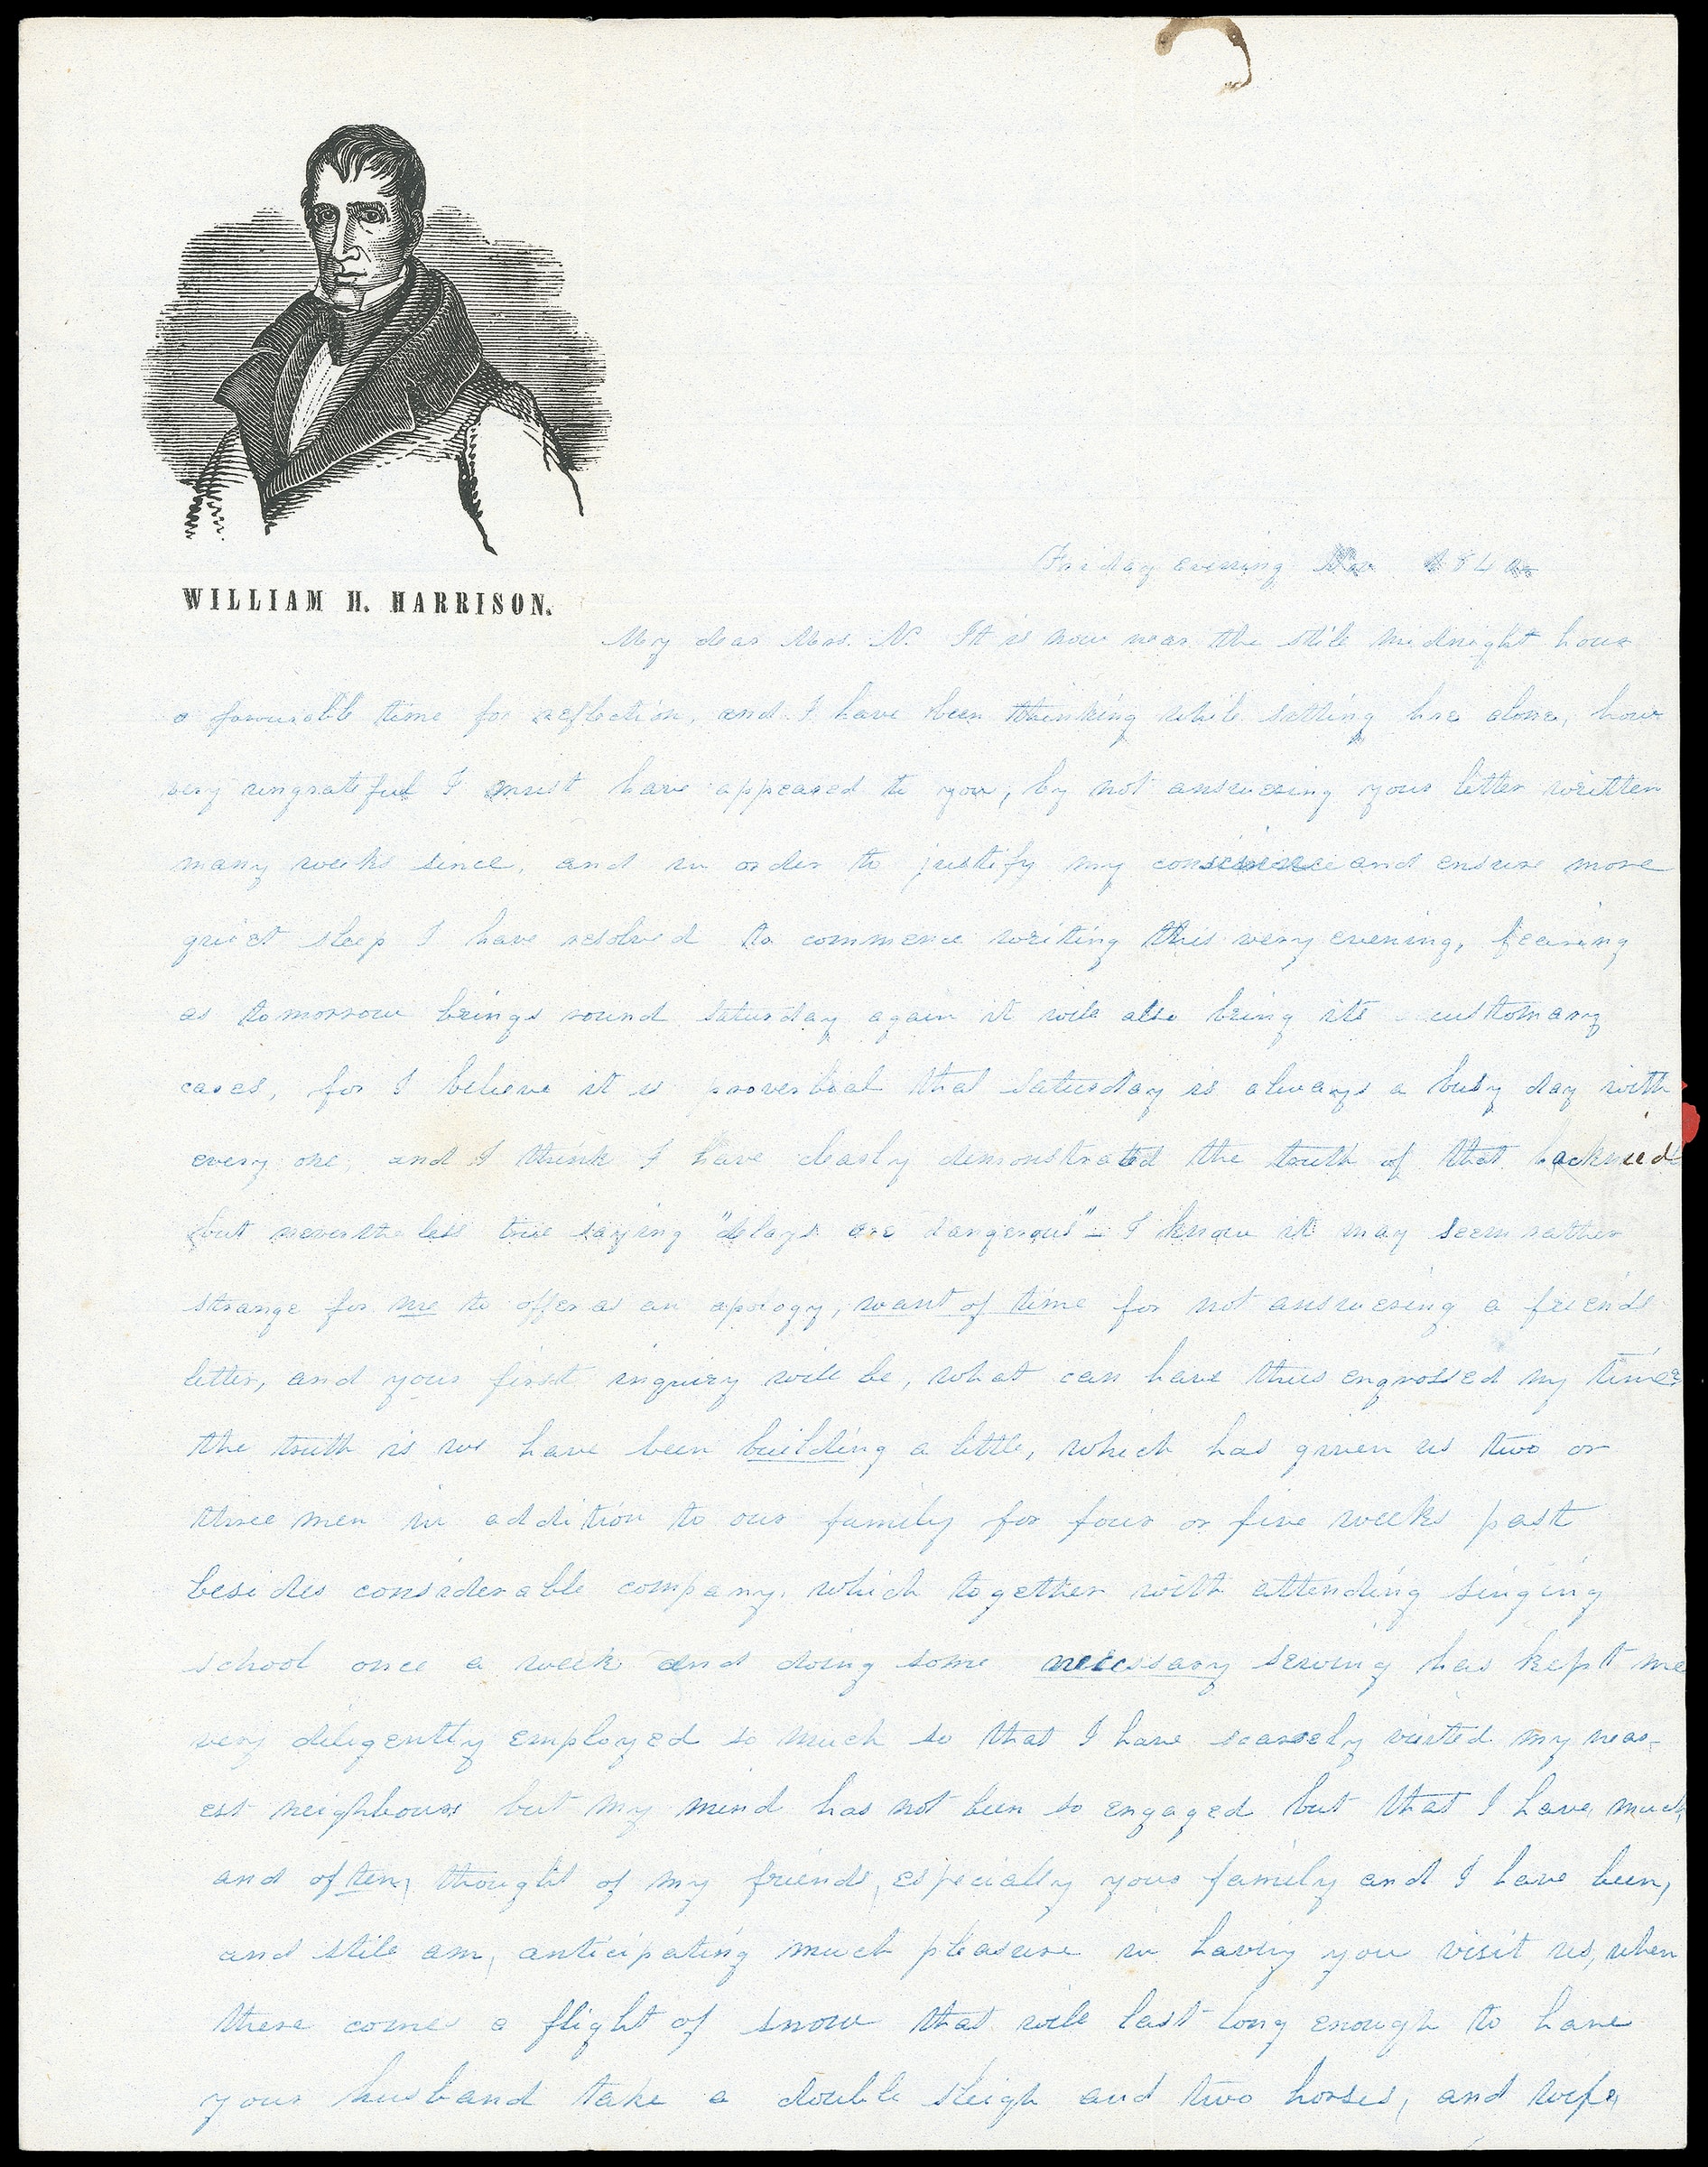 WILLIAM H. HARRISON.
Friday evening Nov 1840
My dear Mrs. N. It is now near the still midnight hour
a favourable time for reflection, and I have been thinking while sitting here alone, how
very ungrateful I must have appeared to you, by not answering your letter written
many weeks since, and in order to justify my conscience and ensure more
quiet sleep I have resolved to commence writing this very evening, fearing
as tomorrow brings round Saturday again it will also bring its customary
cares, for I believe it is proverbial that Saturday is always a busy day with
every one, and I think I have clearly demonstrated the truth of that hacknied
but nevertheless true saying "delays are dangerous" – I know it may seem rather
strange for me to offer as an apology, want of time for not answering a friends
letter, and your first inquiry will be, what can have thus engrossed my time?
the truth is we have been building a little, which has given us two or
three men in addition to our family for four or five weeks past
besides considerable company, which together with attending singing
school once a week and doing some necessary sewing has kept me
very diligently employed so much so that I have scarcely visited my near-
est neighbours but my mind has not been so engaged but that I have, much
and often, thought of my friends, especially your family and I have been,
and still am, anticipating much pleasure in having you visit us, when
there comes a flight of snow that will last long enough to have
your husband take a double sleigh and two horses, and wife,